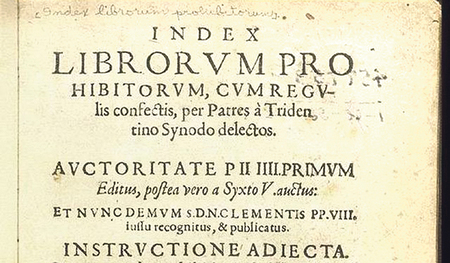 Index librorum prohibitorum.
INDEX
LIBRORVM PRO
HIBITORVM, CVM REGV-
lis confectis, per Patres à Triden
tino Synodo delectos.
AVCTORITATE PII IIII. PRIMVM
Editus, postea vero a Syxto V. auctus:
ET NVNC DEMVM S.D.N. CLEMENTIS PP. VIII.
iussu recognitus, & publicatus.
INSTRVCTIONE ADIECTA.